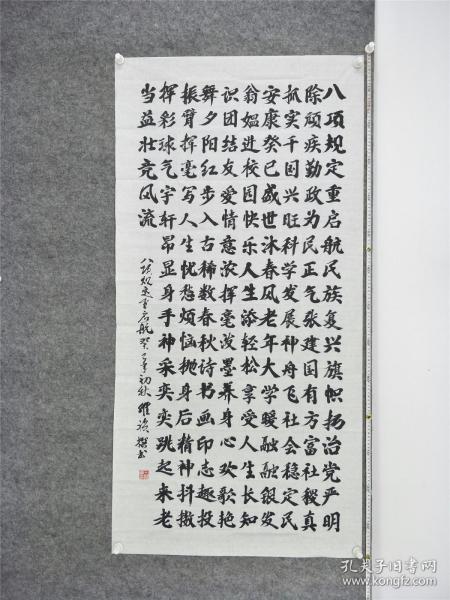 八项规定重启航民族复兴旗帜扬治党严明
除顽疾勤政为民正气张建国有方富社稷真
抓实干国兴旺科学发展神舟飞社会稳定民
安康癸巳盛世沐春风老年大学暖融融银发
翁媪进校园快乐人生添轻松享受人生长知
识团结友爱情意浓挥毫泼墨养身心欢歌艳
舞夕阳红步入古稀数春秋诗书画印志趣投
振臂挥毫写人生忧愁烦恼抛身后精神抖擞
挥彩球气宇轩昂显身手神采奕奕跳起来老
当益壮竞风流
八项规定重启航癸巳年初秋撰书
孔夫子旧书网
www.kongfz.com